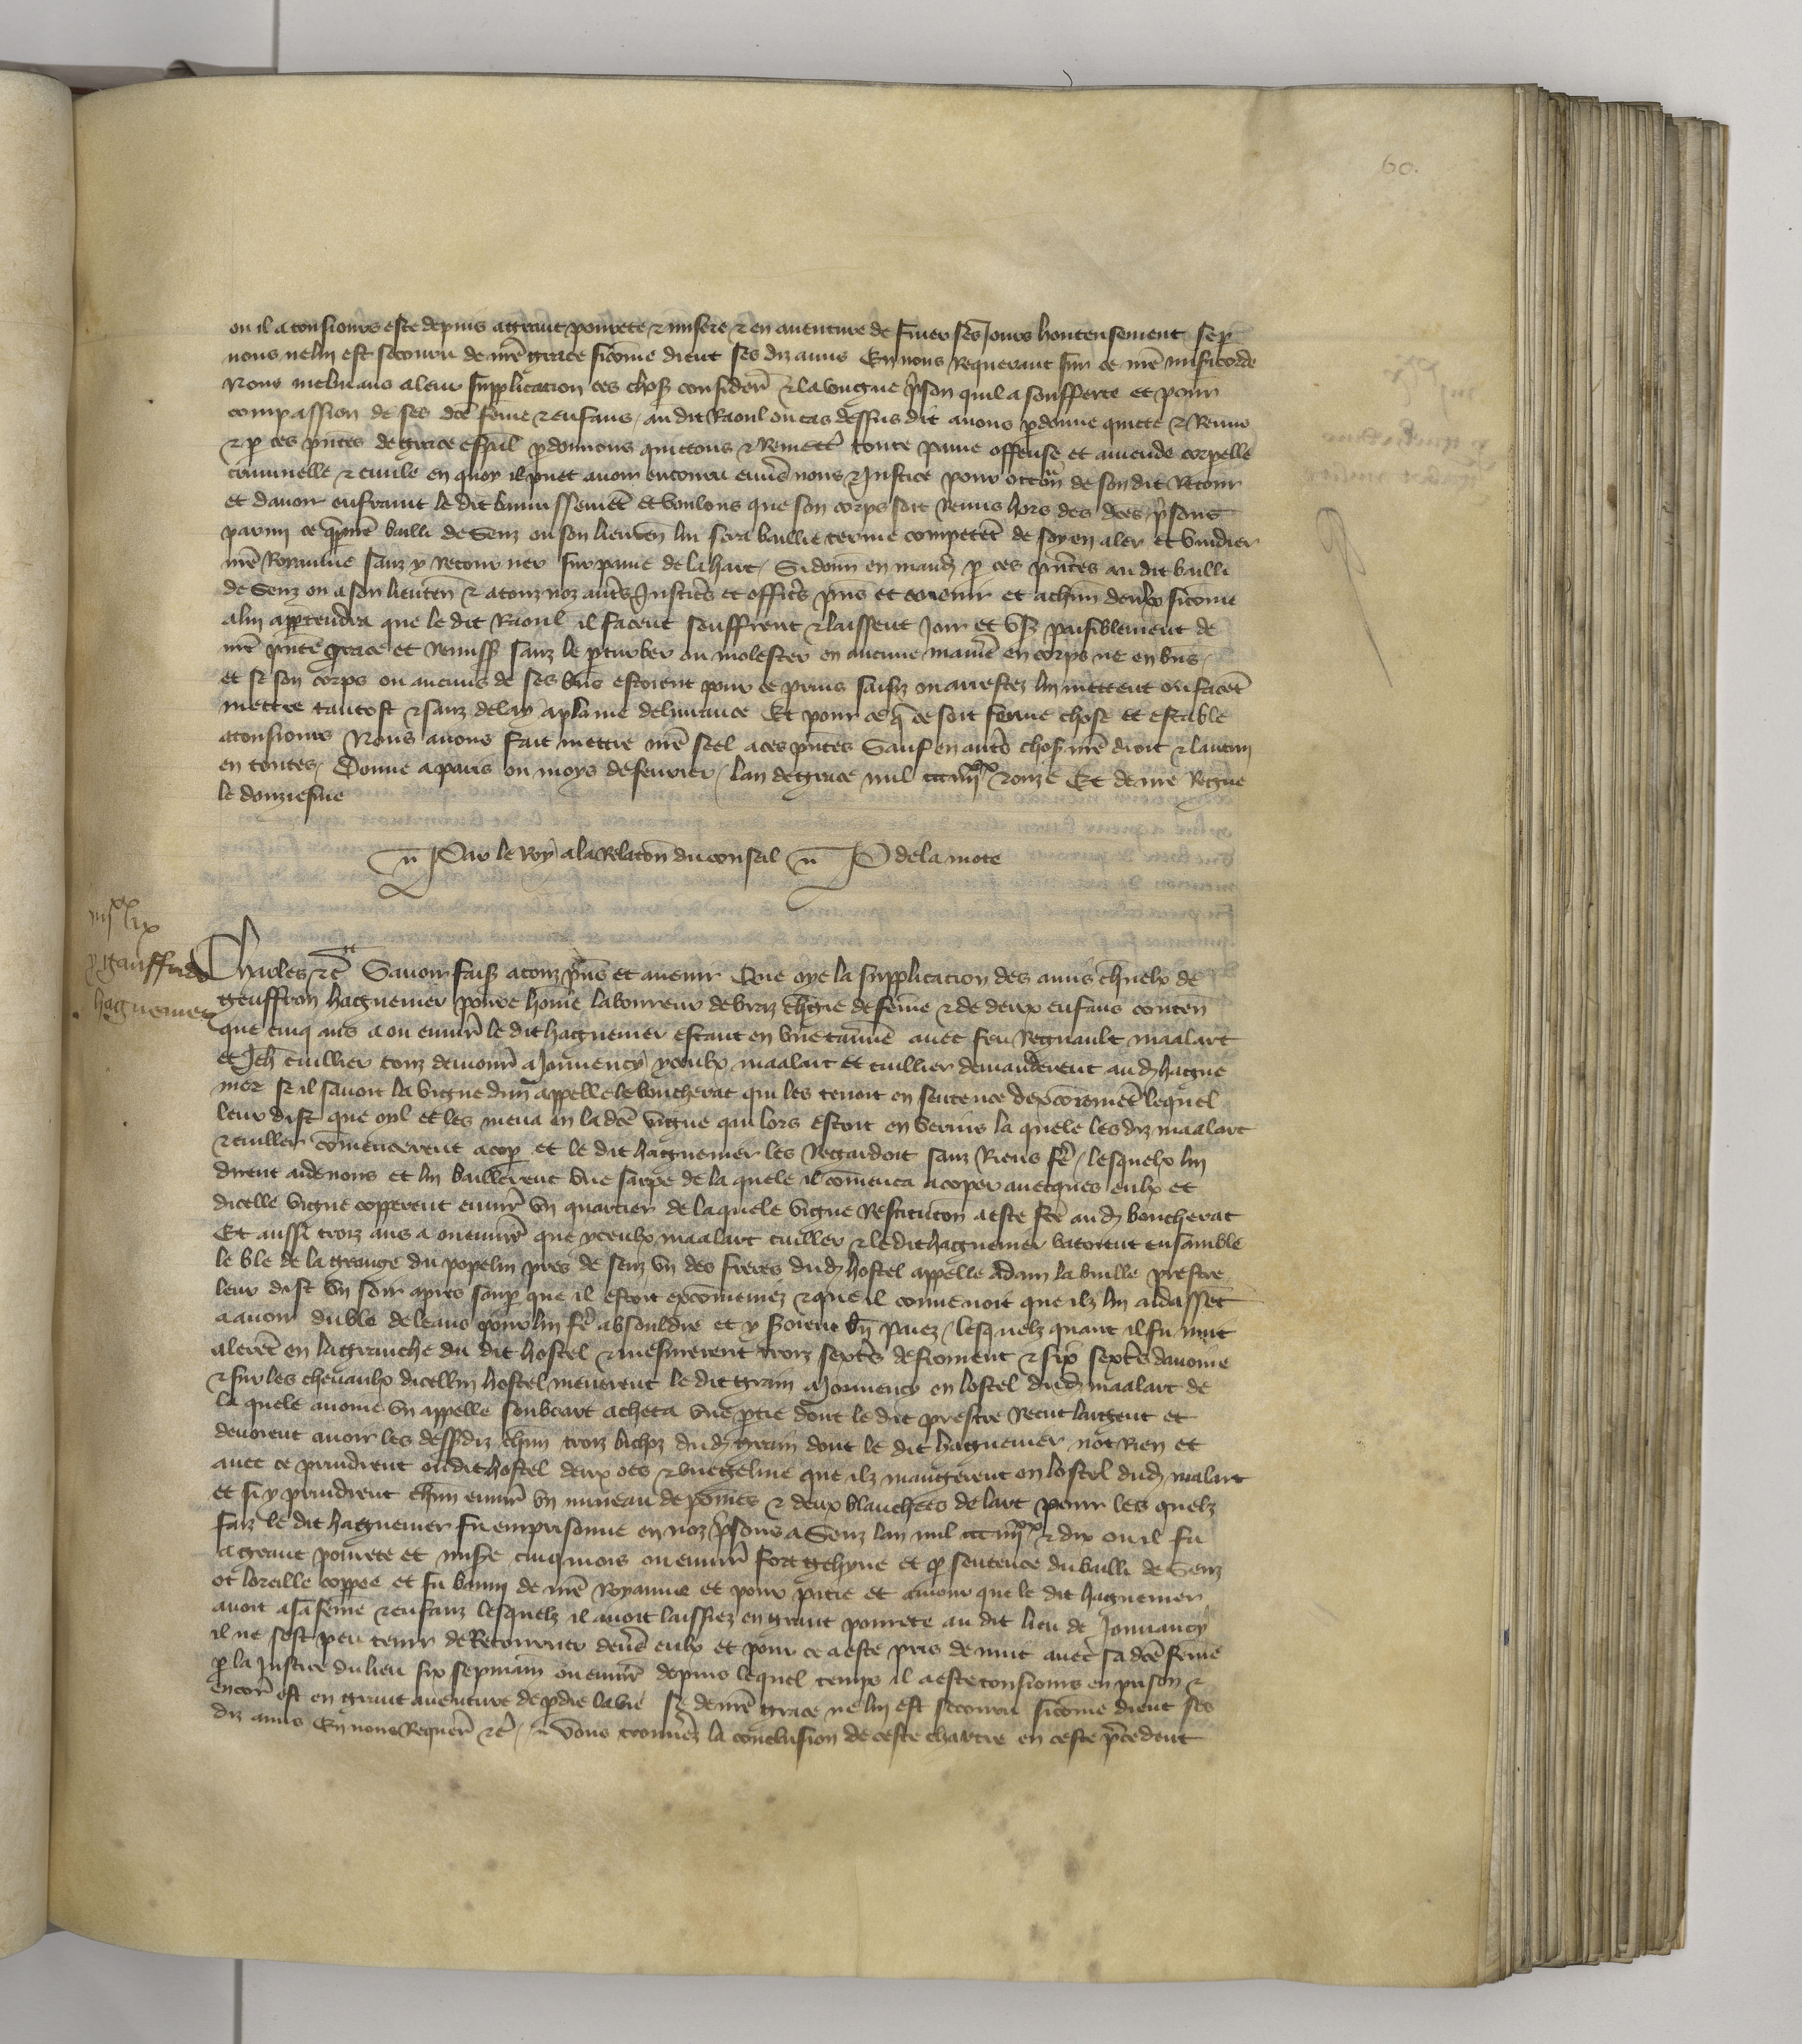 60.
ou il a tousiours este depuis a grant pourete & misere & en auenture de finer ses Jours honteusement se p
nous ne lui est secouru de nre grace sicome dient ses diz amis En nous Requerant sur ce nre misericorde
Nous inclinans a leur supplicacion ces choses consider & la longue prison quil a soufferte et pour
compassion de ses dce feme & enfans / au dit Raoul ou cas dessus dit auons pdonne quicte & Remis
& p ces pntes de grace espal pdonnons quictons & Remett toute paine offense et amende corpelle
criminelle & ciuile en quoy il puet auoir encouru enuers nous & Justice pour occon de son dit Retour
et dauoir enfraint le dit bannissemet Et voulons que son corps soit Remis hors des dces prisons
parmi ce q nre bailli de Senz ou son lieuten lui sera baillie terme competet de soy en aler et vuidier
nre Royaume sanz y Retourner sur paine de la hart / Si donn en mand p ces pntes au dit bailli
de Senz ou a son lieuten & a touz noz autres Justices et officers pns et auenir et a chun deulx sicome
a lui appartendra que le dit Raoul il facent seuffrent & laissent Joir et vser paisiblement de
nre pnte grace et Remiss sanz le pturber ou molester en aucune maniere en corps ne en bns /
et se son corps ou aucuns de ses bns estoient pour ce prins saisiz ou arrestez lui mettent ou facet
mettre tantost & sanz delay a plaine deliurance Et pour ce q ce soit ferme chose et estable
a tousiours Nous auons fait mettre nre seel a ces pntes Sauf en autres choses nre droit & lautrui
en toutes / Donne a paris ou moys de feurier / lan de grace mil ccc iiii xx & onze Et de nre Regne
le douziesme
Par le Roy a la Relacon du conseil P de la mote
iii lix
p gauffrido
haguemer
Charles &c Sauoir fais a touz pns et auenir Que oye la supplicacion des amis charnelx de
geuffroy haguemer poure home laboureur de braz chgie de feme & de deux enfans conten
que cinq ans a ou enuir le dit haguemer estant en vne tauerne auec feu Regnault maalart
et Jeh cuillier touz demour a Jouuency yceulx maalart et cuillier demanderent au d hague
mer se il sauoit la vigne dun appelle le boucherat qui les tenoit en sentence dexcoiemet lequel
leur dist que oyl et les mena en la dce vigne qui lors estoit en verius la quele les diz maalart
& cuillier comencerent a cop et le dit haguemer les Regardoit sanz Riens fe / lesquelx lui
dirent aide nous et lui baillerent vne sarpe de la quele il comenca a coper auecques eulx et
dicelle vigne copperent enuir vn quartier de laquele vigne Restitucon a este fce au d boucherat
Et aussi troiz ans a ou enuir que yceulx maalart cuiller & le dit haguemer batoient ensamble
le ble de la grange du popelin pres de senz vn des freres du d hostel appelle Adam la bulle prestre
leur dist vn soir apres soup que il estoit excomeniez & que il conuenoit que ilz lui aidasset
a auoir du ble de leans pour lui fe absouldre et y seroient bn paiez / lesquelz quant il fu nuit
aleret en la granche du dit hostel & mesurerent troiz sextes de froment & six sextes dauoine
& sur les cheuaulx dicellui hostel menerent le dit grain a Jouuency en lostel du d maalart de
la quele auoine vn appelle soubrart acheta vne ptie dont le dit prestre Recut largent et
deuoient auoir les dessdiz chun troiz bichez du d grain dont le dit haguemer not Rien et
auec ce prindrent ou dit hostel deux oes & vne geline que ilz mangerent en lostel du d malart
et si y prindrent chun enuir vn mineau de pomes & deux blanchees de lart pour les quelz
faiz le dit haguemer fu emprisonne en noz prisons a Senz lan mil ccc iiii xx & dix ou il fu
a grant pourete et misere cinq mois ou enuir fort gehyne et p sentence du bailli de Senz
ot loreille coppee et fu banny de nre Royaume et pour pitie et amour que le dit haguemer
auoit a sa feme & enfanz lesquelz il auoit laissiez en grant pourete au dit lieu de Jouuancy
il ne sest peu tenir de Retourner deuers eulx et pour ce a este pris de nuit auec sa dce feme
p la Justice du lieu six sepmain ou enuir depuis lequel temps il a este tousiours en prison &
encor est en grant auenture de pdre la vie se de nre grace ne lui est secouru sicome dient ses
diz amis En nous Requer &c / vous trouuerez la conclusion de ceste chartre en ceste precedent